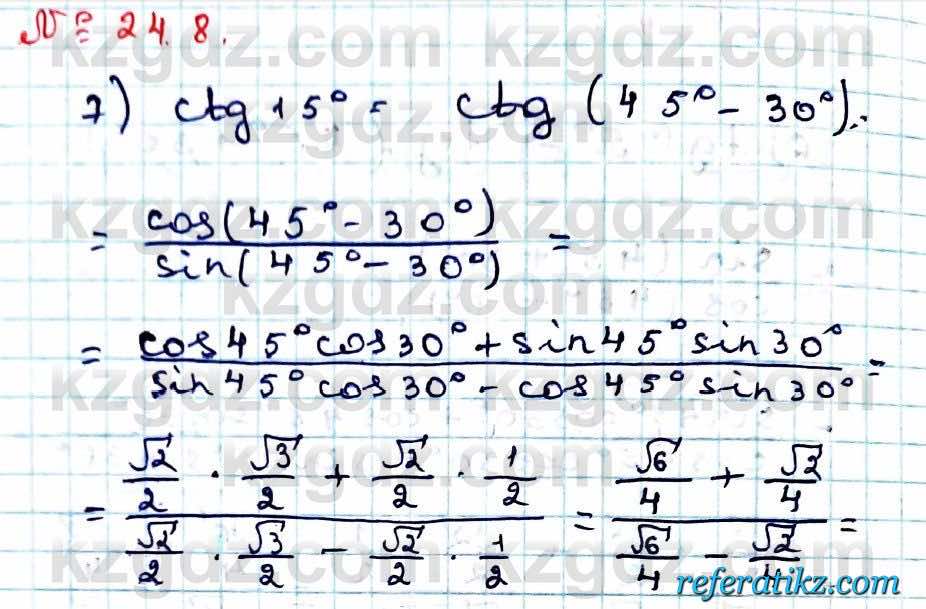 № 24.8.
7) ctg 15° = ctg (45° - 30°) =
= cos(45° - 30°) / sin(45° - 30°) =
= cos45° cos30° + sin45° sin30° / sin45° cos30° - cos45° sin30° =
= √2/2 · √3/2 + √2/2 · 1/2 / √2/2 · √3/2 - √2/2 · 1/2 = √6/4 + √2/4 / √6/4 - √2/4 =
kzgdz.com
referatikz.com